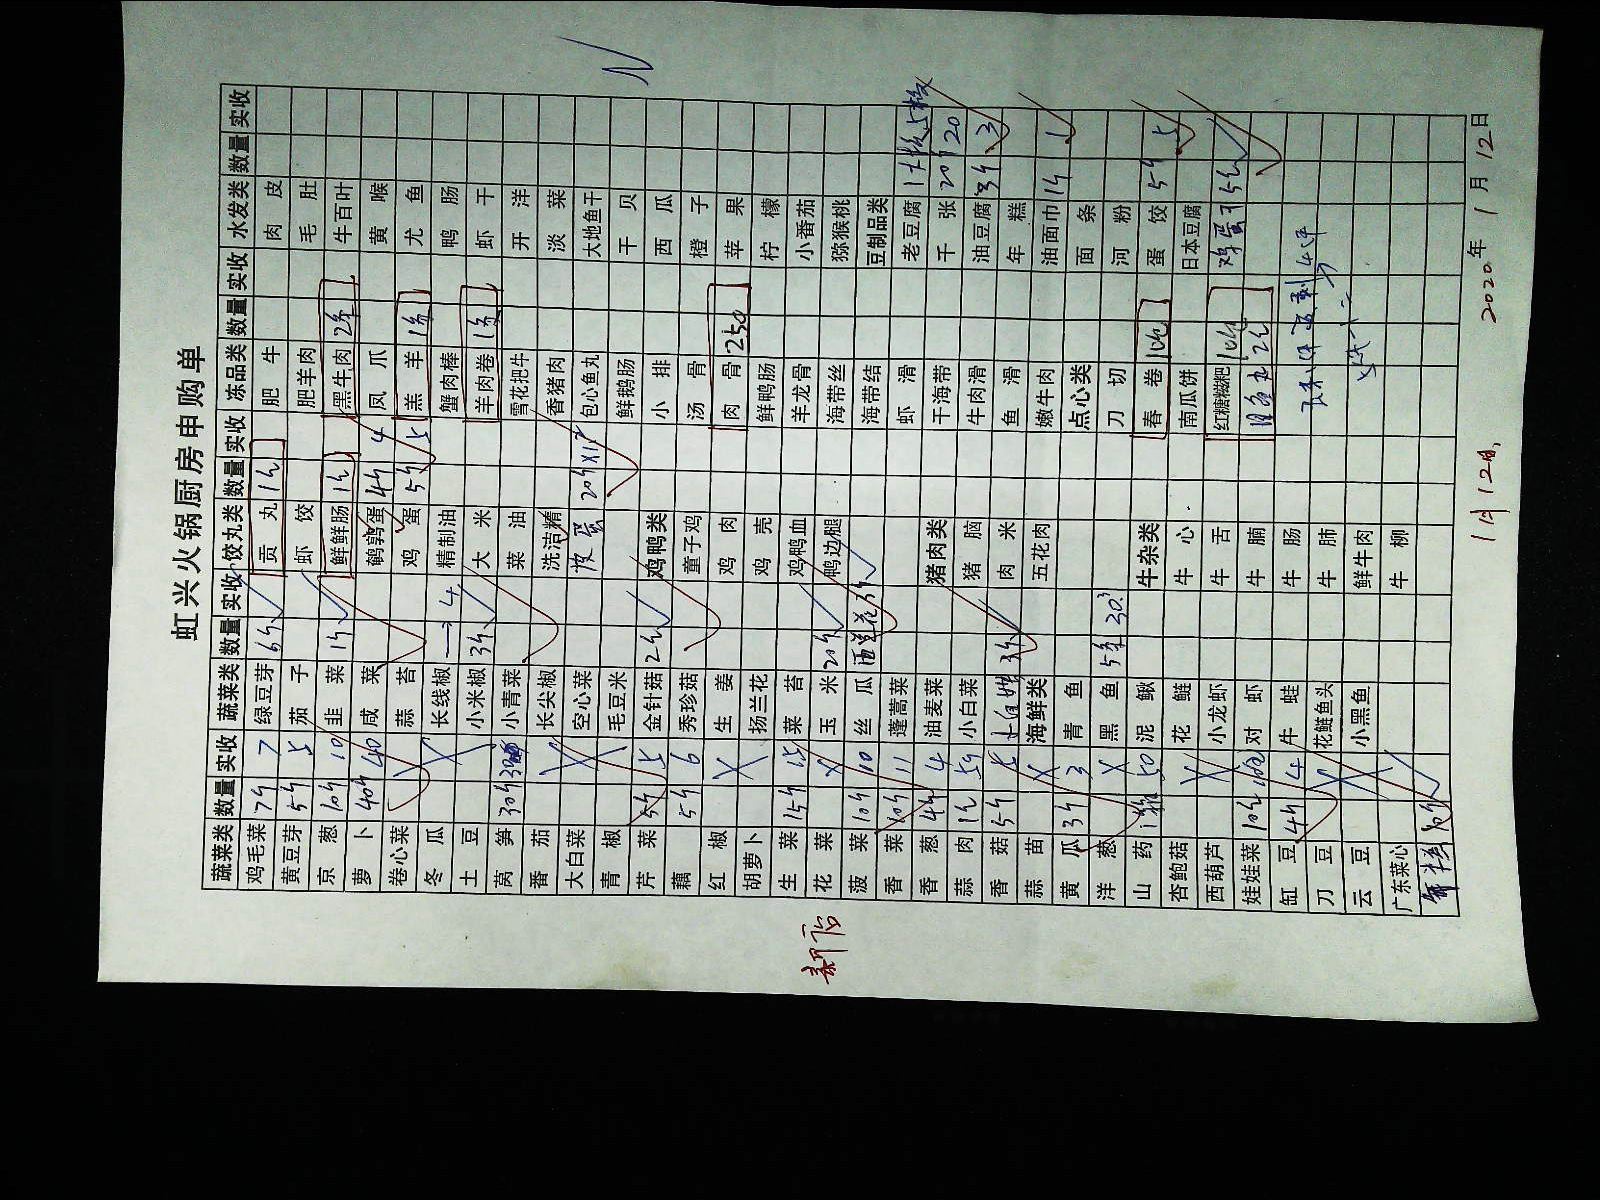 虹兴火锅厨房申购单
蔬菜类 数量 实收 蔬菜类 数量 实收 饺丸类 数量 实收 冻品类 数量 实收 水发类 数量 实收
鸡毛菜 7斤 7 绿豆芽 6斤 贡丸 1包 肥牛 肉皮
黄豆芽 5斤 5 茄子 虾饺 肥羊肉 毛肚
京葱 10斤 10 韭菜 1斤 鲜鲜肠 1包 黑牛肉 2条 牛百叶
萝卜 40斤 40 咸菜 鹌鹑蛋 4斤 4 凤爪 黄喉
卷心菜 蒜苔 鸡蛋 5斤 5 羔羊 1条 尤鱼
冬瓜 长线椒 4 精制油 蟹肉棒 鸭肠
土豆 小米椒 3斤 大米 羊肉卷 1条 虾干
莴笋 30斤 小青菜 菜油 雪花把牛 开洋
番茄 长尖椒 洗洁精 香猪肉 淡菜
大白菜 空心菜 皮蛋 20斤 包心鱼丸 大地鱼干
青椒 毛豆米 鲜鹅肠 干贝
芹菜 5斤 5 金针菇 2包 鸡鸭类 小排 西瓜
藕 5斤 6 秀珍菇 童子鸡 汤骨 橙子
红椒 生姜 鸡肉 肉骨 250 苹果
胡萝卜 扬兰花 鸡壳 鲜鸭肠 柠檬
生菜 15斤 15 菜苔 鸡鸭血 羊龙骨 小番茄
花菜 玉米 20斤 鸭边腿 海带丝 猕猴桃
菠菜 10斤 10 丝瓜 西兰花 海带结 豆制品类
香菜 10斤 11 蓬蒿菜 虾滑 老豆腐 1大板 5板
香葱 4斤 4 油麦菜 猪肉类 干海带 千张 20斤 20
蒜肉 1包 小白菜 猪脑 牛肉滑 油豆腐 3斤 3
香菇 5斤 5 3斤 肉米 鱼滑 年糕
蒜苗 海鲜类 五花肉 嫩牛肉 油面巾 1斤 1
黄瓜 3斤 3 青鱼 点心类 面条
洋葱 黑鱼 5条 刀切 河粉
山药 1箱 50 泥鳅 牛杂类 春卷 10包 蛋饺 5斤 5
杏鲍菇 花鲢 牛心 南瓜饼 日本豆腐
西葫芦 小龙虾 牛舌 红糖糍粑 10包 鸡蛋干 5包
娃娃菜 10包 对虾 牛腩 2包
缸豆 4斤 4 牛蛙 牛肠
刀豆 花鲢鱼头 牛肺
云豆 小黑鱼 鲜牛肉
广东菜心 牛柳
10斤
新店
1月12日
2020年1月12日